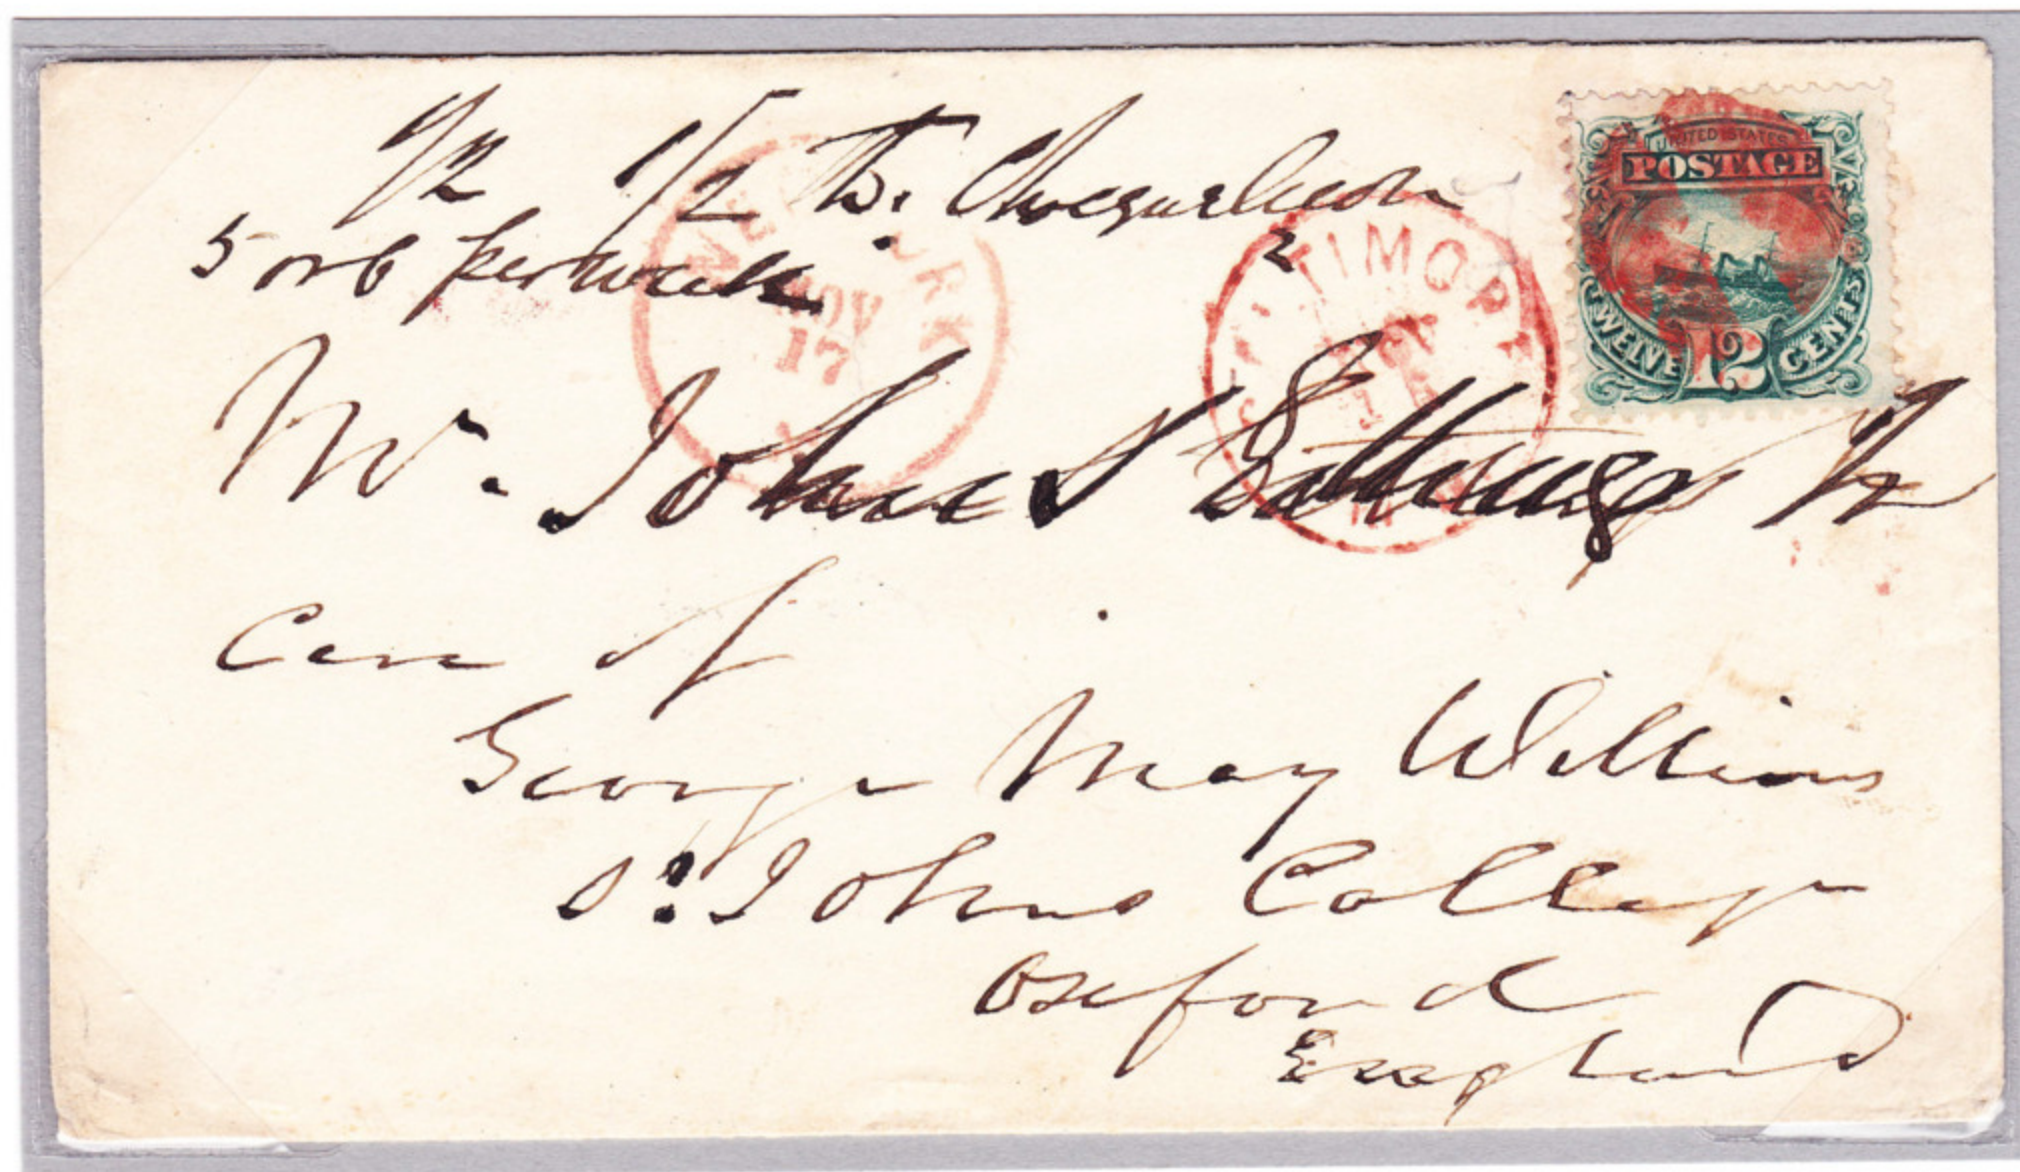 1/2 lb.
5 or 6 per week
NEW YORK
NOV
17
BALTIMORE
UNITED STATES
POSTAGE
TWELVE 12 CENTS
Mr. John S Gittings Jr
Care of
George May Williams
St Johns College
Oxford
England